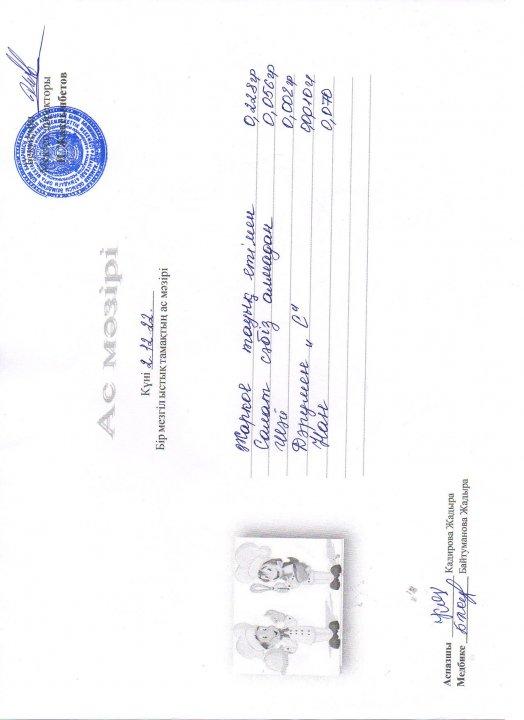 директоры
Ас мәзірі
Күні 2.12.22.
Бір мезгіл ыстық тамақтың ас мәзірі
Жаркое тауық етімен 0,228гр
Салат сәбіз алмадан 0,056гр
Шәй 0,002гр
Дәрумен „С“
Нан 0,070
Аспазшы Кадирова Жадыра
Медбике Байтуманова Жадыра